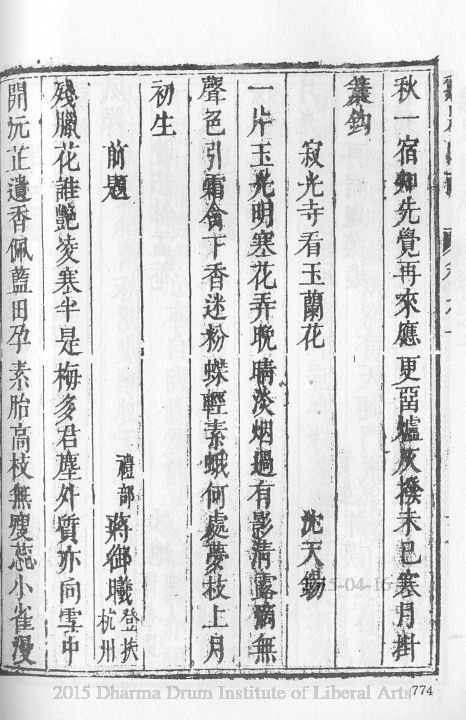 秋一宿卸先覺再來應更留爐灰撥未已寒月掛
簾鈎
寂光寺看玉蘭花 沈天錫
一片玉光明寒花弄晚晴淡烟過有影清露滴無
聲色引霜禽下香迷粉蝶輕素蛾何處夢枝上月
初生
前題 禮部 蔣御曦 登扶 杭州
殘臘花誰艷凌寒半是梅多君塵外質亦向雪中
開沅芷遺香佩藍田孕素胎高枝無𣣔蕊小雀漫
15-04-16
774
2015 Dharma Drum Institute of Liberal Arts